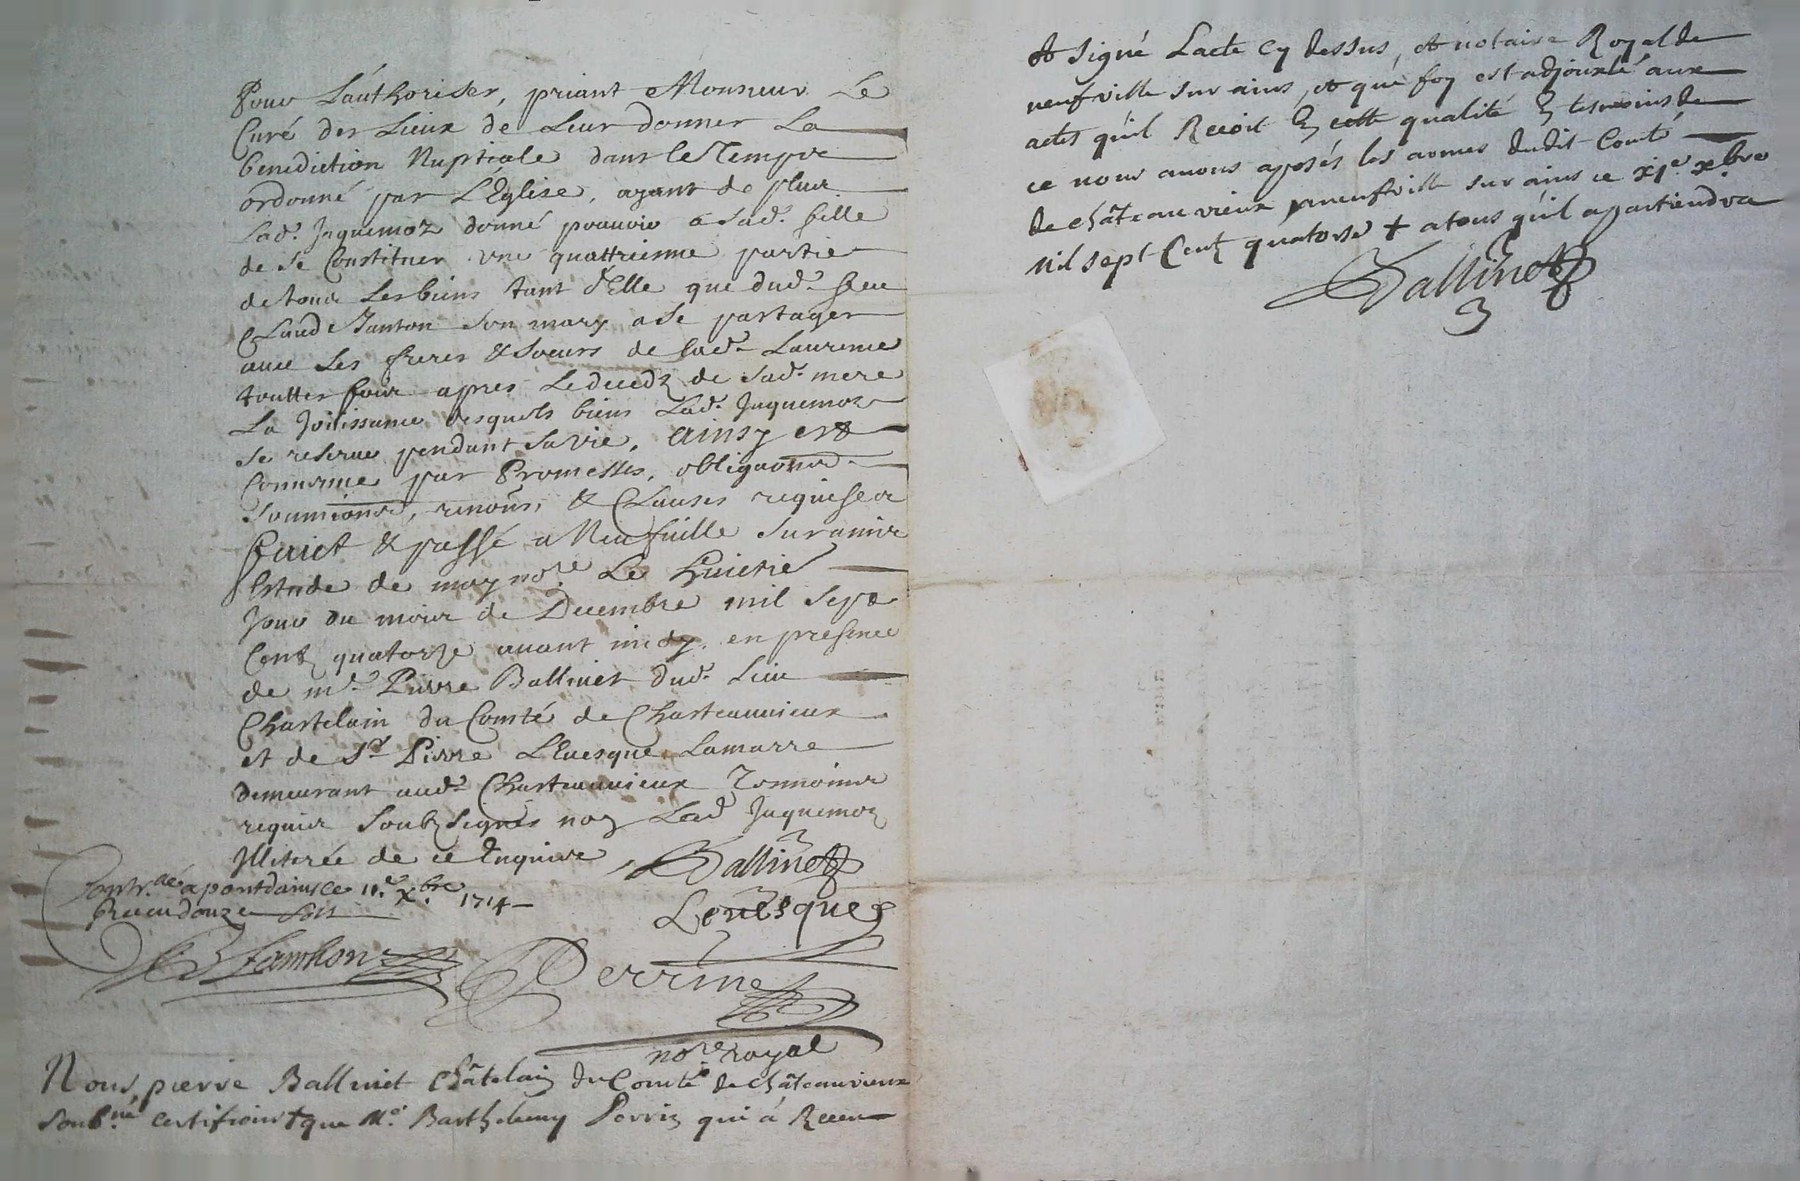 Pour Lauthoriser, priant Monsieur Le
Curé des Lieux de Leur donner La
benediction Nuptiale dans le Tempre
ordonné par L'Eglise, ayant de plus
Lad.e Jaquemoz donné pouvoir a Sad.e fille
de se Constituer une quattrieme partie
de tous Les biens tant d'Elle que dud.t feu
Claude Janton son mary a se partager
avec Les freres & Soeurs de Lad.e Laurence
touttes fois apres Le decedz de Sad.e mere
La Joüissance desquels biens Lad.e Jaquemoz
se reserve pendant sa vie, ainsy est
Convenue par Promesses, obligaõns
soumiõns, renoñs, & Clauses requises
faict & passé a Neufville sur ains
Estude de moy no.re Le huictie
Jour du mois de Decembre mil sept
Centz quatorze avant midy, en presence
de m.e Pierre Ballivet dud.t Lieu
Chastelain du Comté de Chasteauvieux
et de S.r Pierre L'Evesque Lamarre
demeurant aud.t Chasteauvieux Tesmoins
requis Soubsignés non Lad.e Jaquemoz
Illiterée de ce Enquise
Ballivet
Contr.ole a pontdains ce 11.e x.bre 1714
Receu douze sols
Levesque
Perrin
no.re royal
Nous, pierre Ballivet Châtelain du Comté de châteauvieux
soub.né certifions que M.e Barthelemy Perrin qui à Receu
et signé Lacte cy dessus, est notaire Royal de
neufville sur ains, et que foy est adjoutée aux
actes qu'il Recoit En cette qualité En tesmoins de
ce nous avons aposés les armes dudit Comté
de châteauvieux a neufville sur ains ce xi.e x.bre
mil sept Centz quatorse + a tous qu'il apartiendra
Ballivet